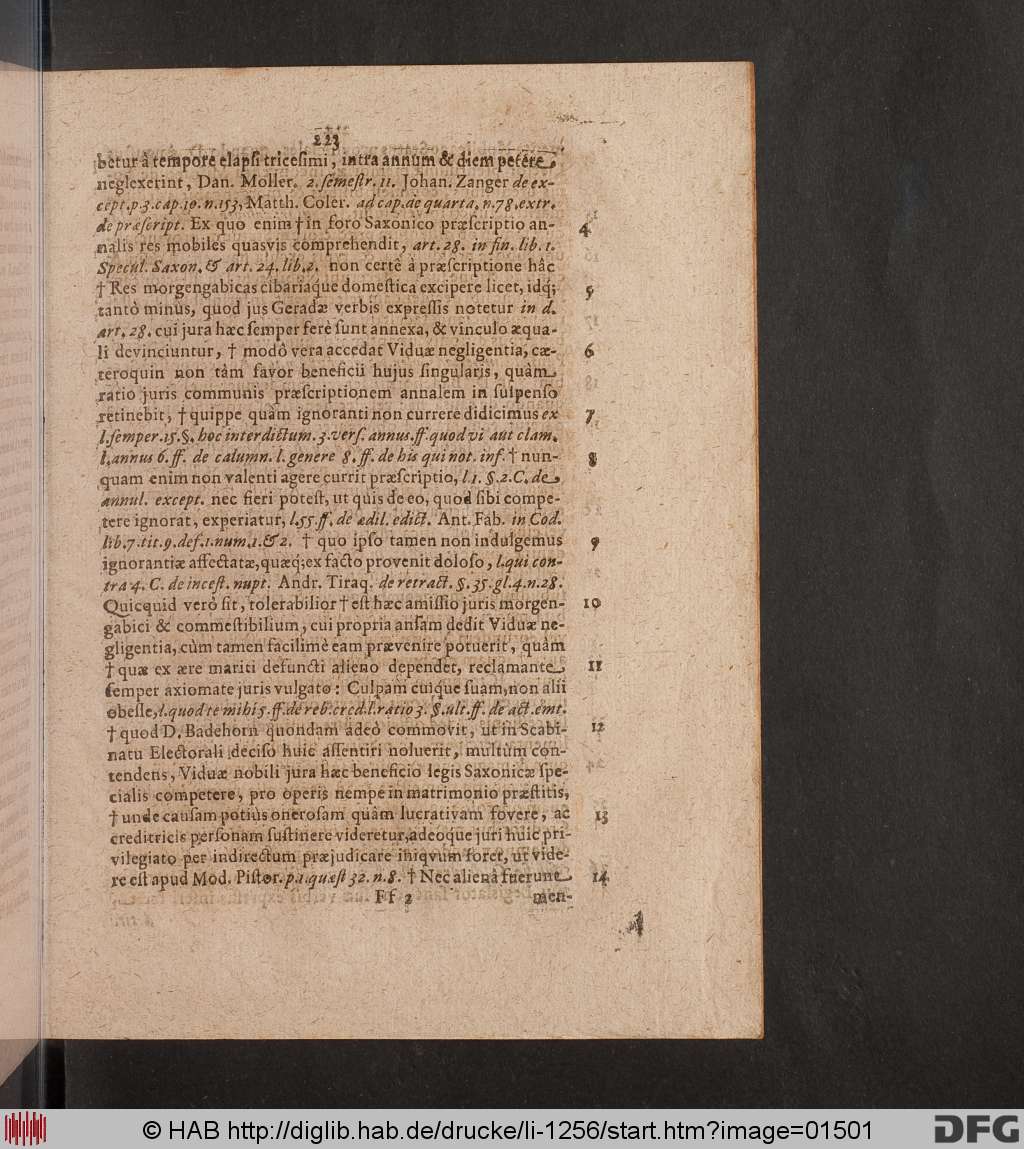 223
betur â tempore elapsi tricesimi, intra annum & diem petere
neglexerint, Dan. Moller. 2. semestr. 11. Johan. Zanger de ex-
cept. p. 3. cap. 10. n. 153, Matth. Coler. ad cap. de quarta. n. 78. extr.
de præscript. Ex quo enim † in foro Saxonico præscriptio an- 4
nalis res mobiles quasvis comprehendit, art. 28. in fin. lib. 1.
Specul. Saxon. & art. 24. lib. 2. non certè â præscriptione hâc
† Res morgengabicas cibariaque domestica excipere licet, idq; 5
tantò minus, quod jus Geradæ verbis expressis notetur in d.
art. 28. cui jura hæc semper ferè sunt annexa, & vinculo æqua-
li devinciuntur, † modô vera accedat Viduæ negligentia, cæ- 6
teroquin non tàm favor beneficii hujus singularis, quàm
ratio juris communis præscriptionem annalem in suspenso
retinebit, † quippe quàm ignoranti non currere didicimus ex 7
l. semper. 15. §. hoc interdictum. 3. vers. annus. ff. quod vi aut clam.
l. annus 6. ff. de calumn. l. genere 8. ff. de his qui not. inf. † nun- 8
quam enim non valenti agere currit præscriptio, l. 1. §. 2. C. de
annul. except. nec fieri potest, ut quis de eo, quod sibi compe-
tere ignorat, experiatur, l. 55. ff. de ædil. edict. Ant. Fab. in Cod.
lib. 7. tit. 9. def. 1. num. 1. & 2. † quo ipso tamen non indulgemus 9
ignorantiæ affectatæ, quæq; ex facto provenit doloso, l. qui con-
tra 4. C. de incest. nupt. Andr. Tiraq. de retract. §. 35. gl. 4. n. 28.
Quicquid verò sit, tolerabilior † est hæc amissio juris morgen- 10
gabici & commestibilium, cui propria ansam dedit Viduæ ne-
gligentia, cùm tamen facilimè eam prævenire potuerit, quàm
† quæ ex ære mariti defuncti alieno dependet, reclamante 11
semper axiomate juris vulgato: Culpam cuique suam, non alii
obesse, l. quod te mihi 5. ff. de reb. cred. l. ratio 3. §. ult. ff. de act. emt.
† quod D. Badehorn quondam adeò commovit, ut in Scabi- 12
natu Electorali deciso huic assentiri noluerit, multùm con-
tendens, Viduæ nobili jura hæc beneficio legis Saxonicæ spe-
cialis competere, pro operis nempe in matrimonio præstitis,
† unde causam potiùs onerosam quâm lucrativam fovere, ac 13
creditricis personam sustinere videretur, adeoque juri huic pri-
vilegiato per indirectum præjudicare iniqvum foret, ut vide-
re est apud Mod. Pistor. p. 1. quæst 32. n. 8. † Nec alienâ fuerunt 14
Ff 2 men-
© HAB http://diglib.hab.de/drucke/li-1256/start.htm?image=01501
DFG